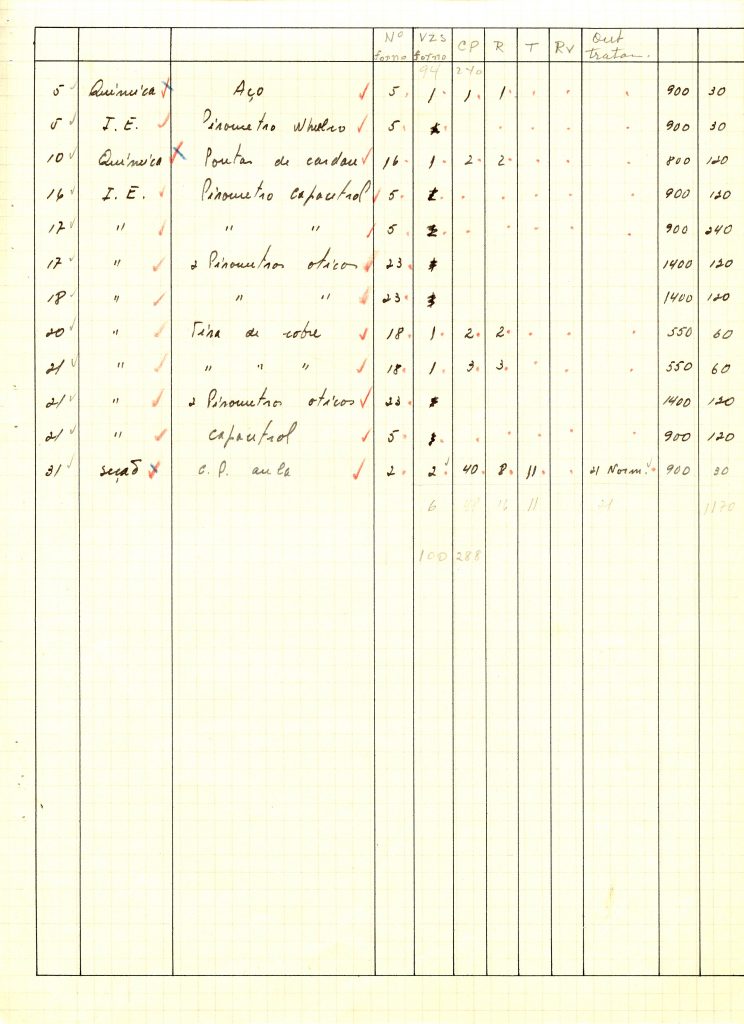 Nº VZS CP R T RV Out
forno forno tratam.
94 240
5 Química Aço 5 1 1 1 900 30
5 I.E. Pirometro 5 900 30
10 Química Pontas de cardan 16 1 2 2 800 120
16 I.E. Pirometro Capacitrol 5 900 120
17 " " " 5 900 240
17 " 2 Pirometros oticos 23 1400 120
18 " " " 23 1400 120
20 " Tira de cobre 18 1 2 2 550 60
21 " " " " 18 1 3 3 550 60
21 " 2 Pirometros oticos 23 1400 120
21 " capacitrol 5 900 120
31 seção C.P. aula 2 2 40 8 11 21 Norm. 900 30
6 11 21 1170
100 288